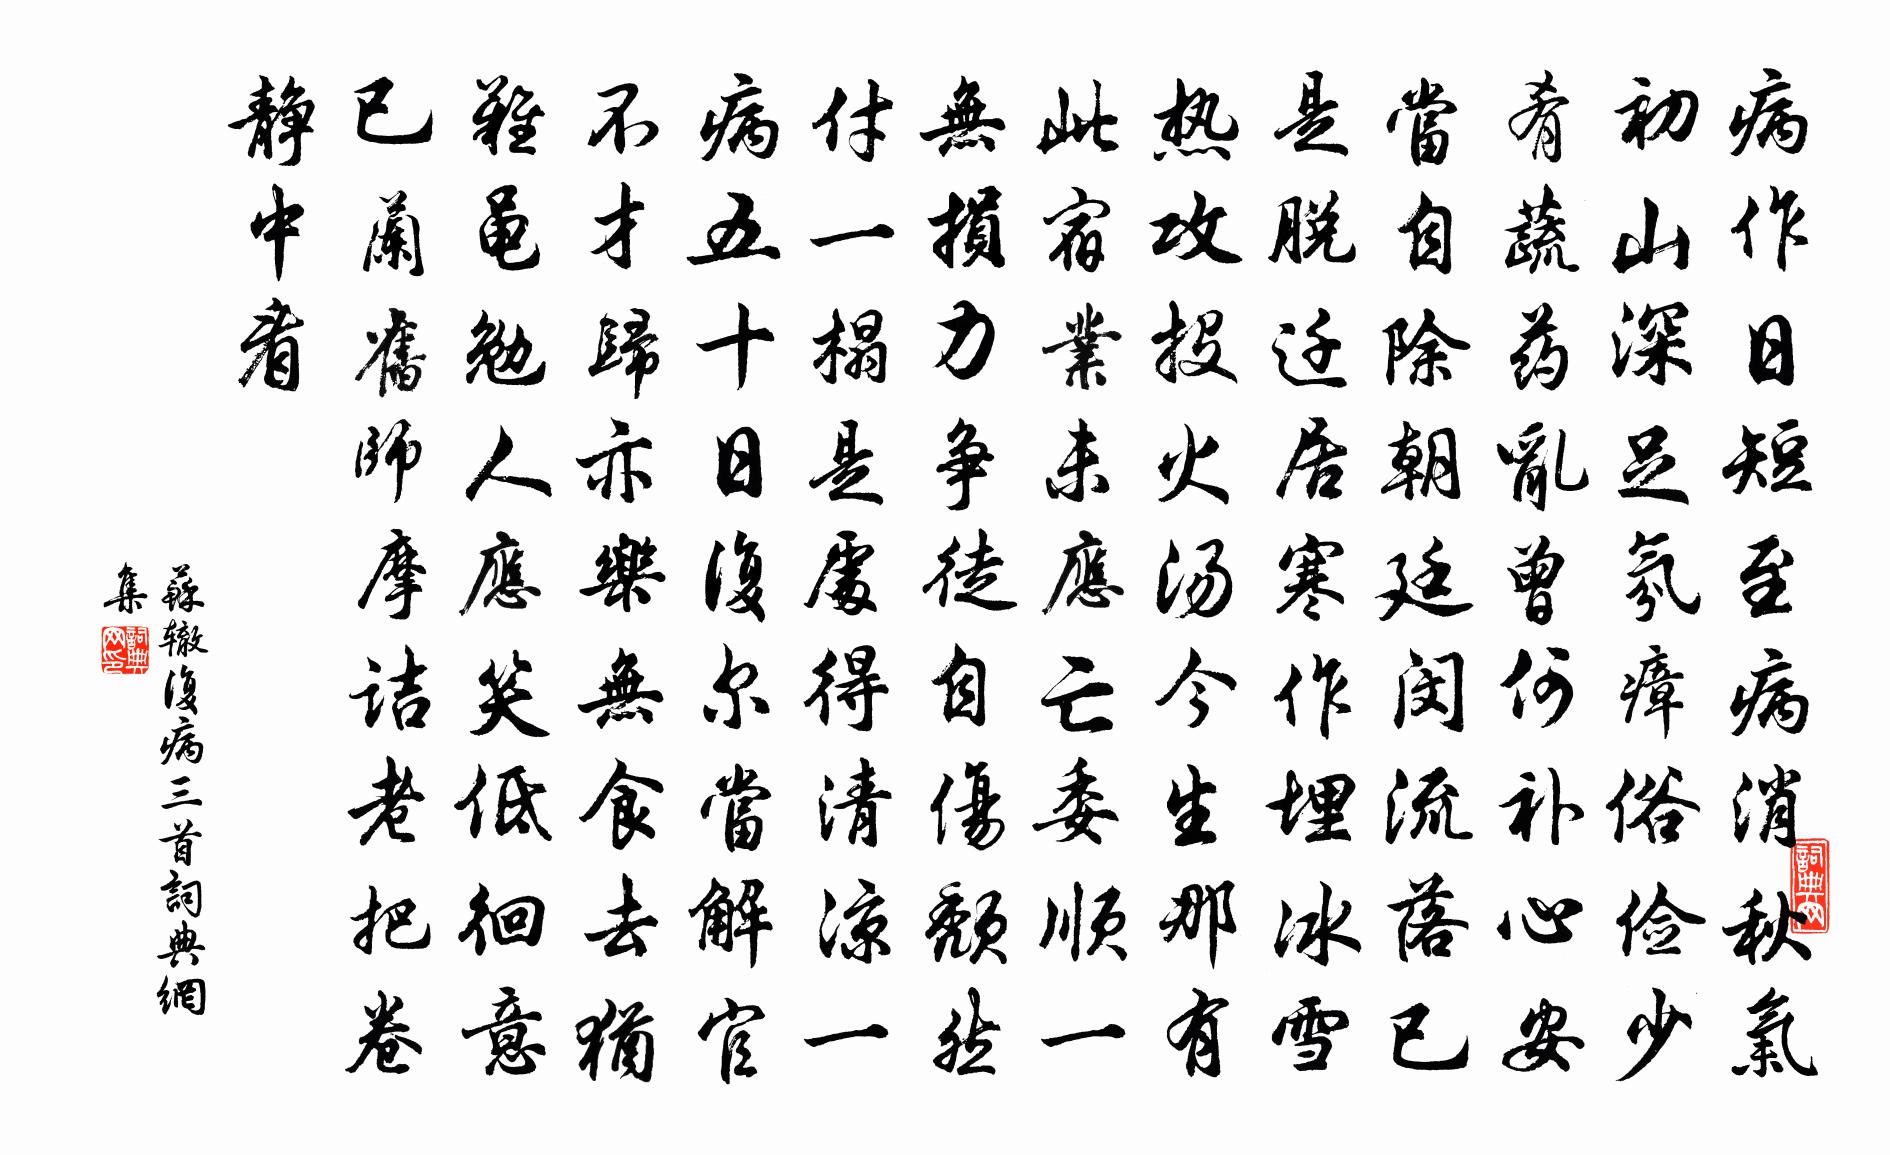 病作日短至病消秋氣
初山深足氛瘴俗俭少
肴蔬药亂曾何补心安
當自除朝廷闵流落已
是脱迁居寒作埋冰雪
热攻投火汤今生那有
此宿業未應亡委順一
無損力争徒自傷颓然
付一榻是處得清凉一
病五十日復尔當解官
不才歸亦樂無食去猶
難黾勉人應笑低徊意
已蘭舊師摩诘老把卷
静中看
蘇辙復病三首詞典網
集
詞典网印
詞典网